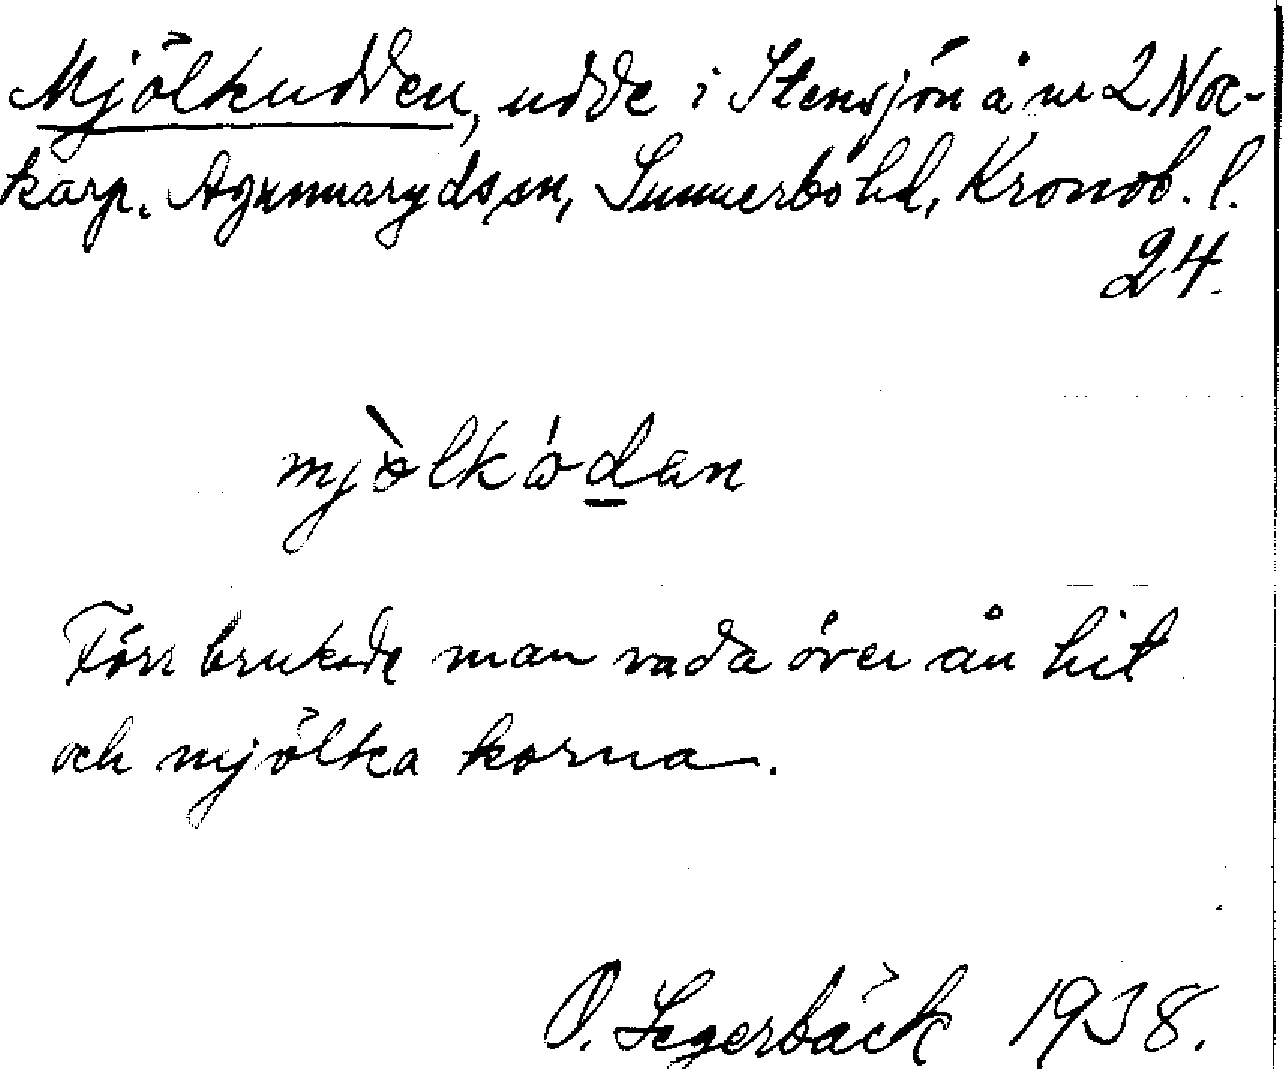 Mjölkudden, udde i Stensjön å nr 2 Noc-
karp. Agunnaryds sn, Sunnerbo hd, Kronob. l.
24.
mjòlkódan
Förr brukade man vada över ån hit
och mjölka korna.
O. Segerbäck 1938.